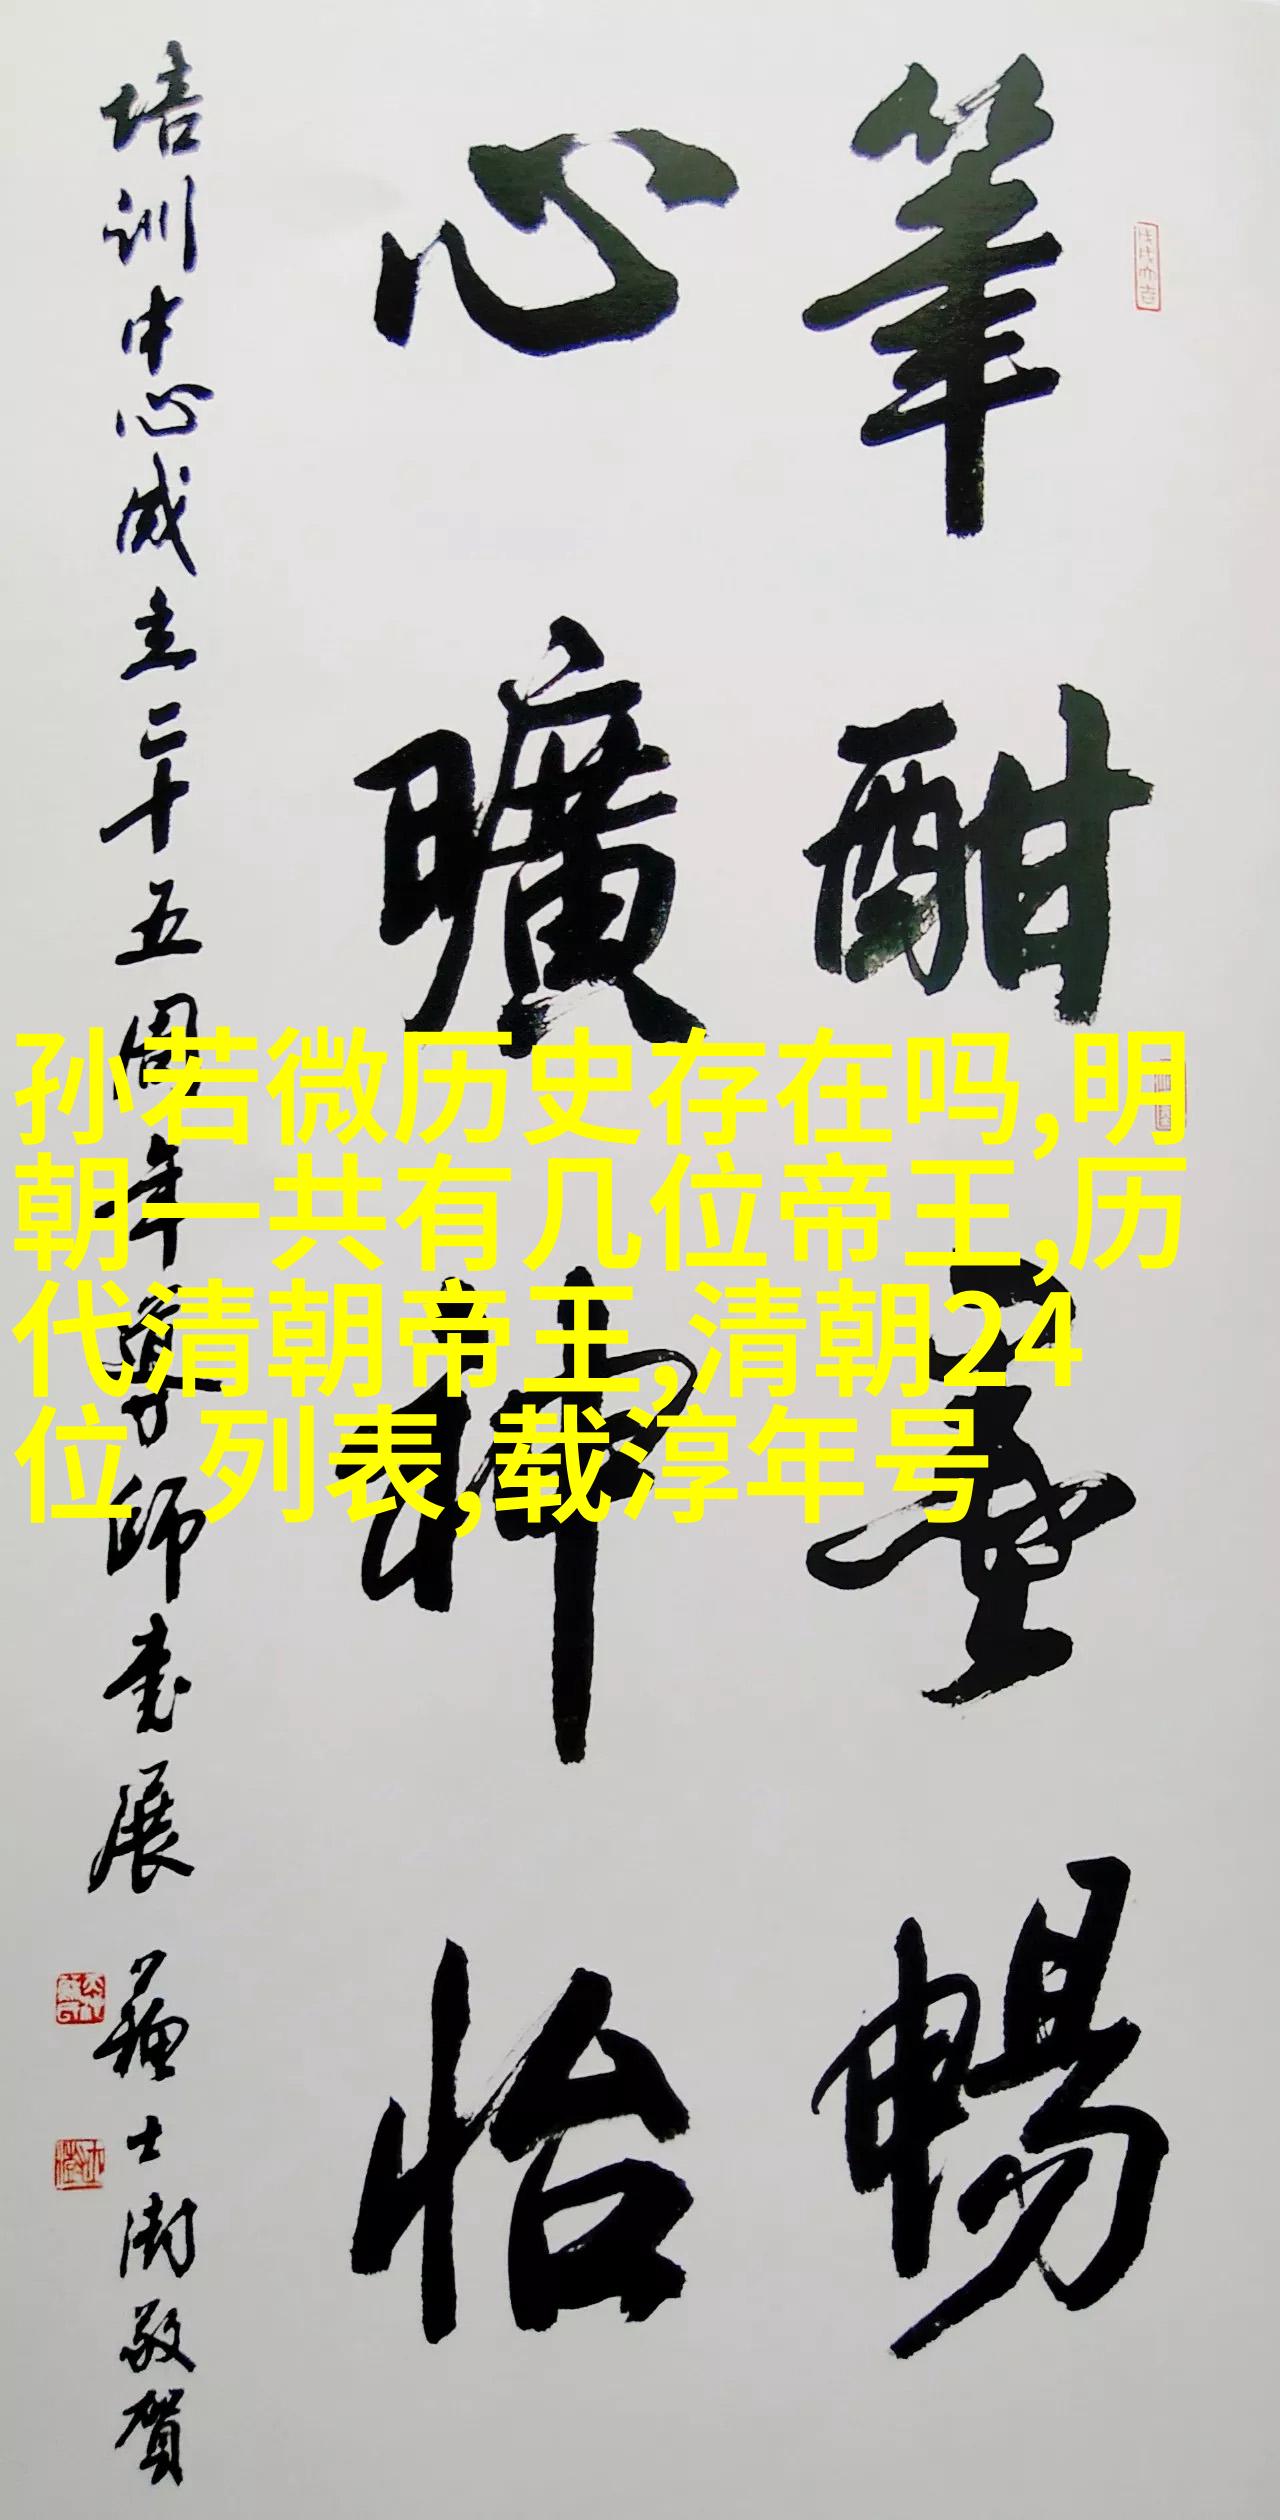 筆酣墨暢
心曠神怡
培训中心成立二十五周年尊师书展 苏士澍敬贺
孙若微历史存在吗,明
朝一共有几位帝王,历
代清朝帝王,清朝24
位 列表,载淳年号